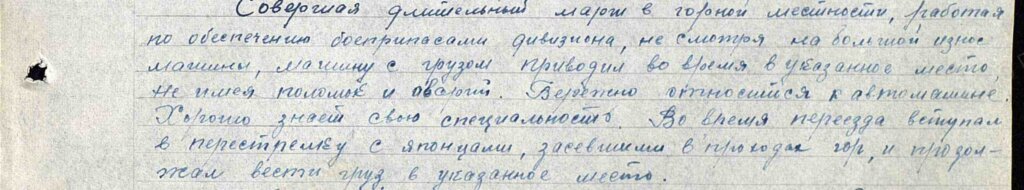 Совершая длительный марш в горной местности, работая
по обеспечению боеприпасами дивизиона, не смотря на большой износ
машины, машину с грузом приводил во время в указанное место,
не имея поломок и аварий. Бережно относится к автомашине.
Хорошо знает свою специальность. Во время переезда вступал
в перестрелку с японцами, засевшими в проходах гор, и продол-
жал вести груз в указанное место.